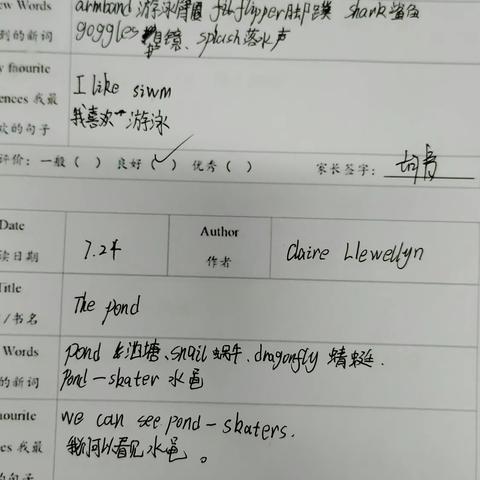 ew Words armband 游泳臂圈 flipper 脚蹼 shark 鲨鱼
到的新词 goggles 眼镜、splush 落水声
y faourite I like siwm
ences 我最 我喜欢游泳
欢的句子
评价：一般（ ） 良好（✓） 优秀（ ） 家长签字：
Date 7.24 Author Claire Llewellyn
读日期 作者
Title The pond
/书名
Words pond 池塘、snail 蜗牛、dragonfly 蜻蜓.
的新词 Pond-skater 水黾
aourite we can see pond-skaters.
es 我最 我们可以看见水黾。
的句子